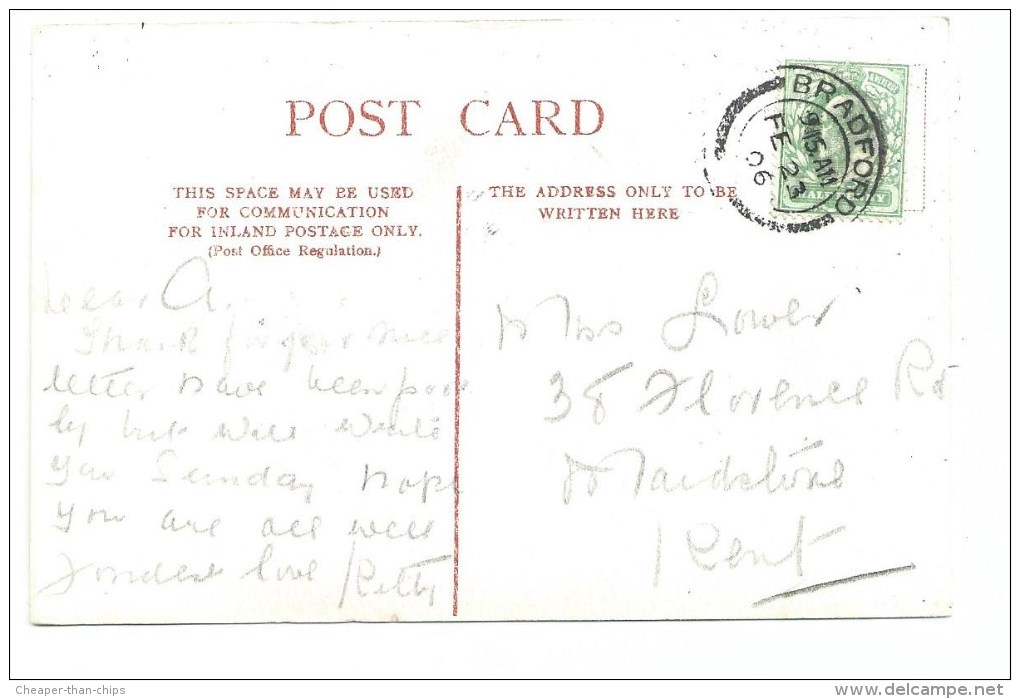 POST CARD
THIS SPACE MAY BE USED
FOR COMMUNICATION
FOR INLAND POSTAGE ONLY.
(Post Office Regulation.)
THE ADDRESS ONLY TO BE
WRITTEN HERE
BRADFORD
9.15.AM
FE 23
06
Dear A.
Thank for your nice
letter have been poor
ly but will write
you Sunday hope
you are all well
fondest love Kitty
Miss Lower
38 Florence Rd
Maidstone
Kent
Cheaper-than-chips
www.delcampe.net